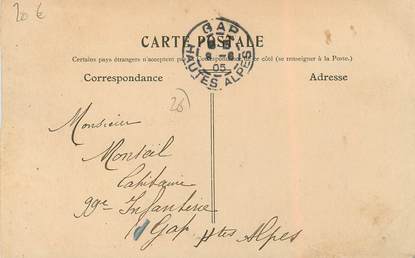 20 €
CARTE POSTALE
Certains pays étrangers n'acceptent pas de Correspondance de ce côté (se renseigner à la Poste).
Correspondance
Adresse
GAP
05
HAUTES-ALPES
26
Monsieur
Monteil
Capitaine
99e Infanterie
Gap
Htes Alpes